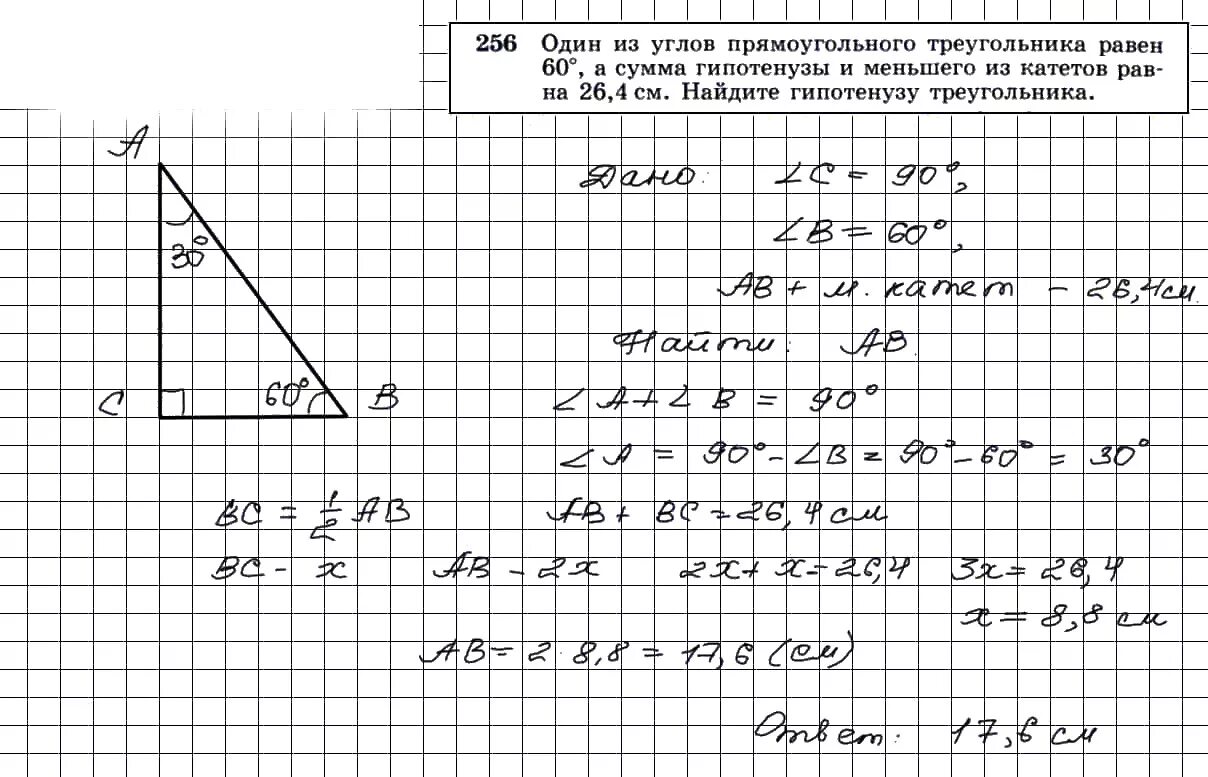 256 Один из углов прямоугольного треугольника равен
60°, а сумма гипотенузы и меньшего из катетов рав-
на 26,4 см. Найдите гипотенузу треугольника.
A
30°
C
60°
B
Дано: ∠C = 90°,
∠B = 60°,
AB + м. катет - 26,4 см.
Найти: AB.
∠A + ∠B = 90°
∠A = 90° - ∠B = 90° - 60° = 30°
BC = 1/2 AB AB + BC = 26,4 см
BC - x AB - 2x 2x + x = 26,4 3x = 26,4
x = 8,8 см
AB = 2 · 8,8 = 17,6 (см)
Ответ: 17,6 см